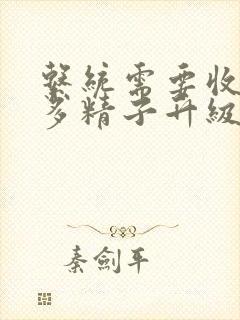 繫統需要收
多精子升級
秦劍平